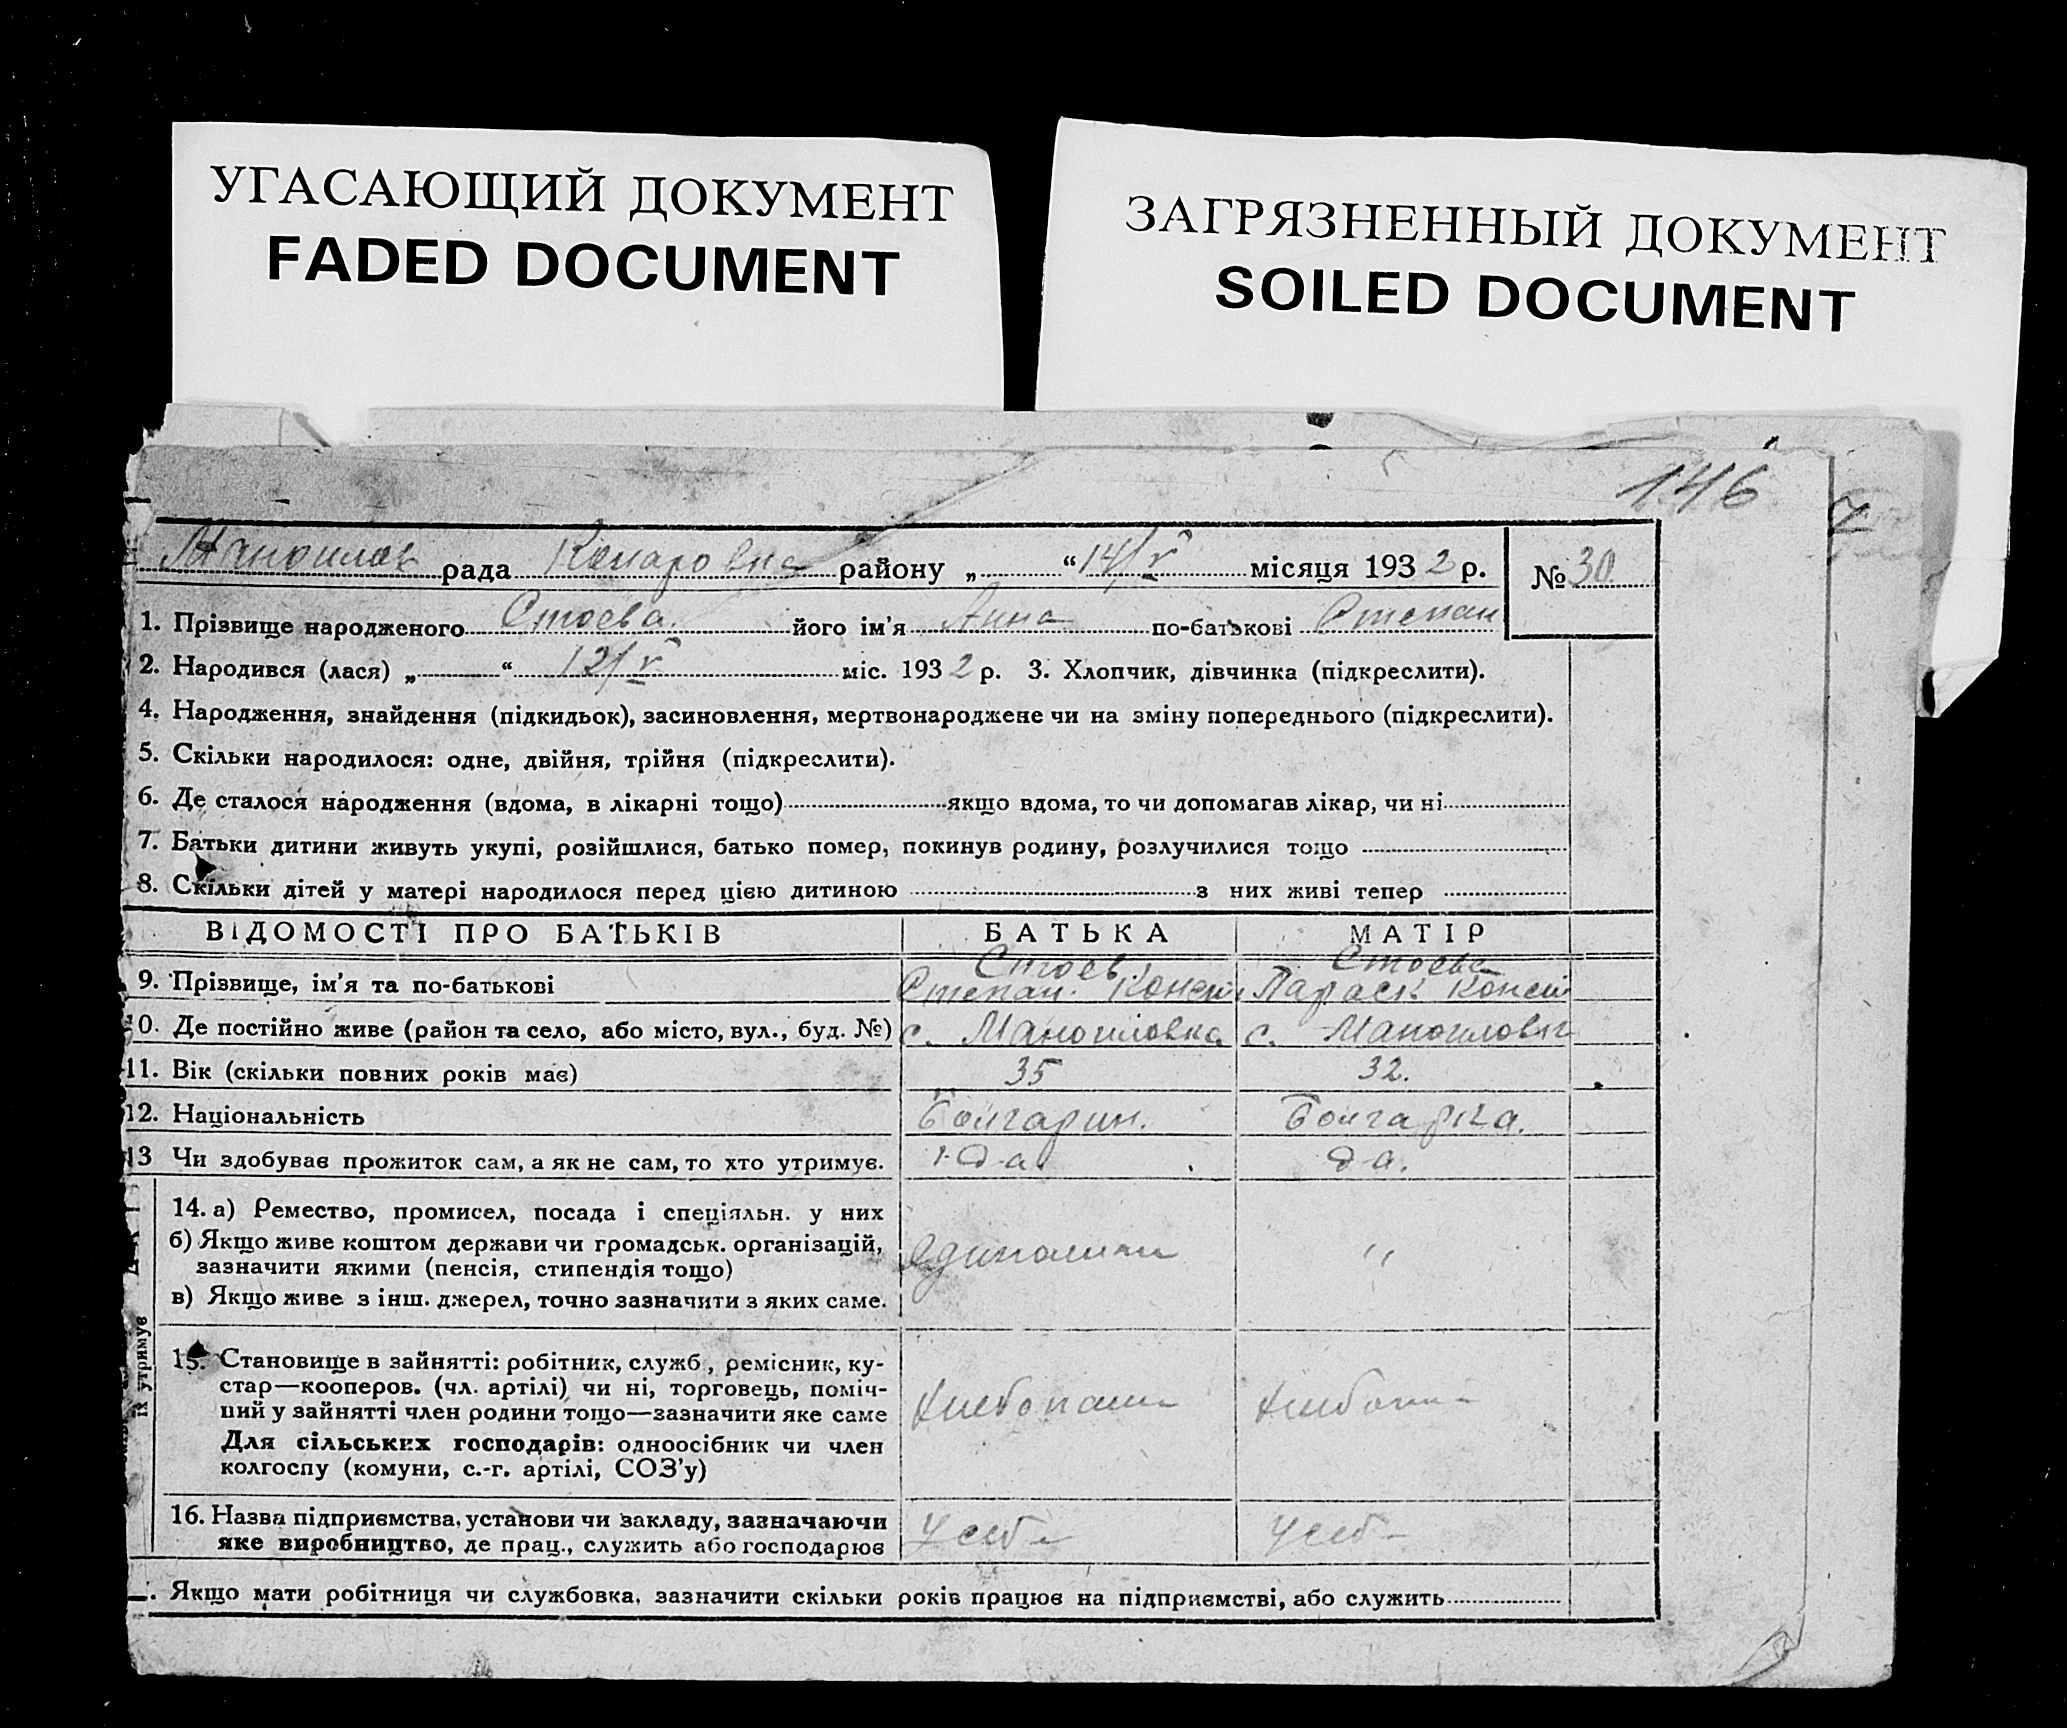 УГАСАЮЩИЙ ДОКУМЕНТ
FADED DOCUMENT
ЗАГРЯЗНЕННЫЙ ДОКУМЕНТ
SOILED DOCUMENT
146
рада району „ “ 14/V місяця 1932 р. № 30
1. Прізвище народженого Стоева його ім'я Анна по-батькові Степан
2. Народився (лася) „ “ 12/V міс. 1932 р. 3. Хлопчик, дівчинка (підкреслити).
4. Народження, знайдення (підкидьок), засиновлення, мертвонароджене чи на зміну попереднього (підкреслити).
5. Скільки народилося: одне, двійня, трійня (підкреслити).
6. Де сталося народження (вдома, в лікарні тощо) якщо вдома, то чи допомагав лікар, чи ні
7. Батьки дитини живуть укупі, розійшлися, батько помер, покинув родину, розлучилися тощо
8. Скільки дітей у матері народилося перед цією дитиною з них живі тепер
ВІДОМОСТІ ПРО БАТЬКІВ БАТЬКА МАТІР
9. Прізвище, ім'я та по-батькові Стоев Степан Стоева Параск
10. Де постійно живе (район та село, або місто, вул., буд. №) с. Маноиловка с.
11. Вік (скільки повних років має) 35 32.
12. Національність Болгарин. Болгарка.
13 Чи здобуває прожиток сам, а як не сам, то хто утримує. да. да.
14. а) Ремество, промисел, посада і спеціяльн. у них
б) Якщо живе коштом держави чи громадськ. організацій,
зазначити якими (пенсія, стипендія тощо) "
в) Якщо живе з інш. джерел, точно зазначити з яких саме.
їх утримує
15. Становище в зайнятті: робітник, служб., ремісник, ку-
стар—кооперов. (чл. артілі) чи ні, торговець, поміч-
ний у зайнятті член родини тощо—зазначити яке саме
Для сільських господарів: одноосібник чи член
колгоспу (комуни, с.-г. артілі, СОЗ'у)
16. Назва підприємства, установи чи закладу, зазначаючи
яке виробництво, де прац., служить або господарює
Якщо мати робітниця чи службовка, зазначити скільки років працює на підприємстві, або служить